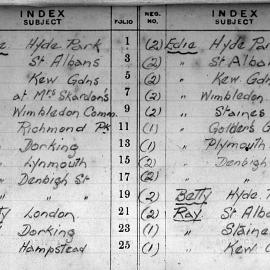 INDEX SUBJECT FOLIO NEG. NO. INDEX SUBJECT
Hyde Park 1 (2) Edie Hyde Pa
St Albans 3 (2) " St Alban
Kew Gdns 5 (2) " Kew Gdn
at Mrs Skardon's 7 (2) " Wimbledon
Wimbledon Comm. 9 (2) " Staines
Richmond Pk 11 (1) " Golders G
" Dorking 13 (1) " Plymouth
" Lynmouth 15 (2) " Denbigh
" Denbigh St 17 (2) "
" " 19 (2) Betty Hyde P
ty London 21 (2) Ray St Alba
" Dorking 23 (1) " Staine
Hampstead 25 (1) " Kew G